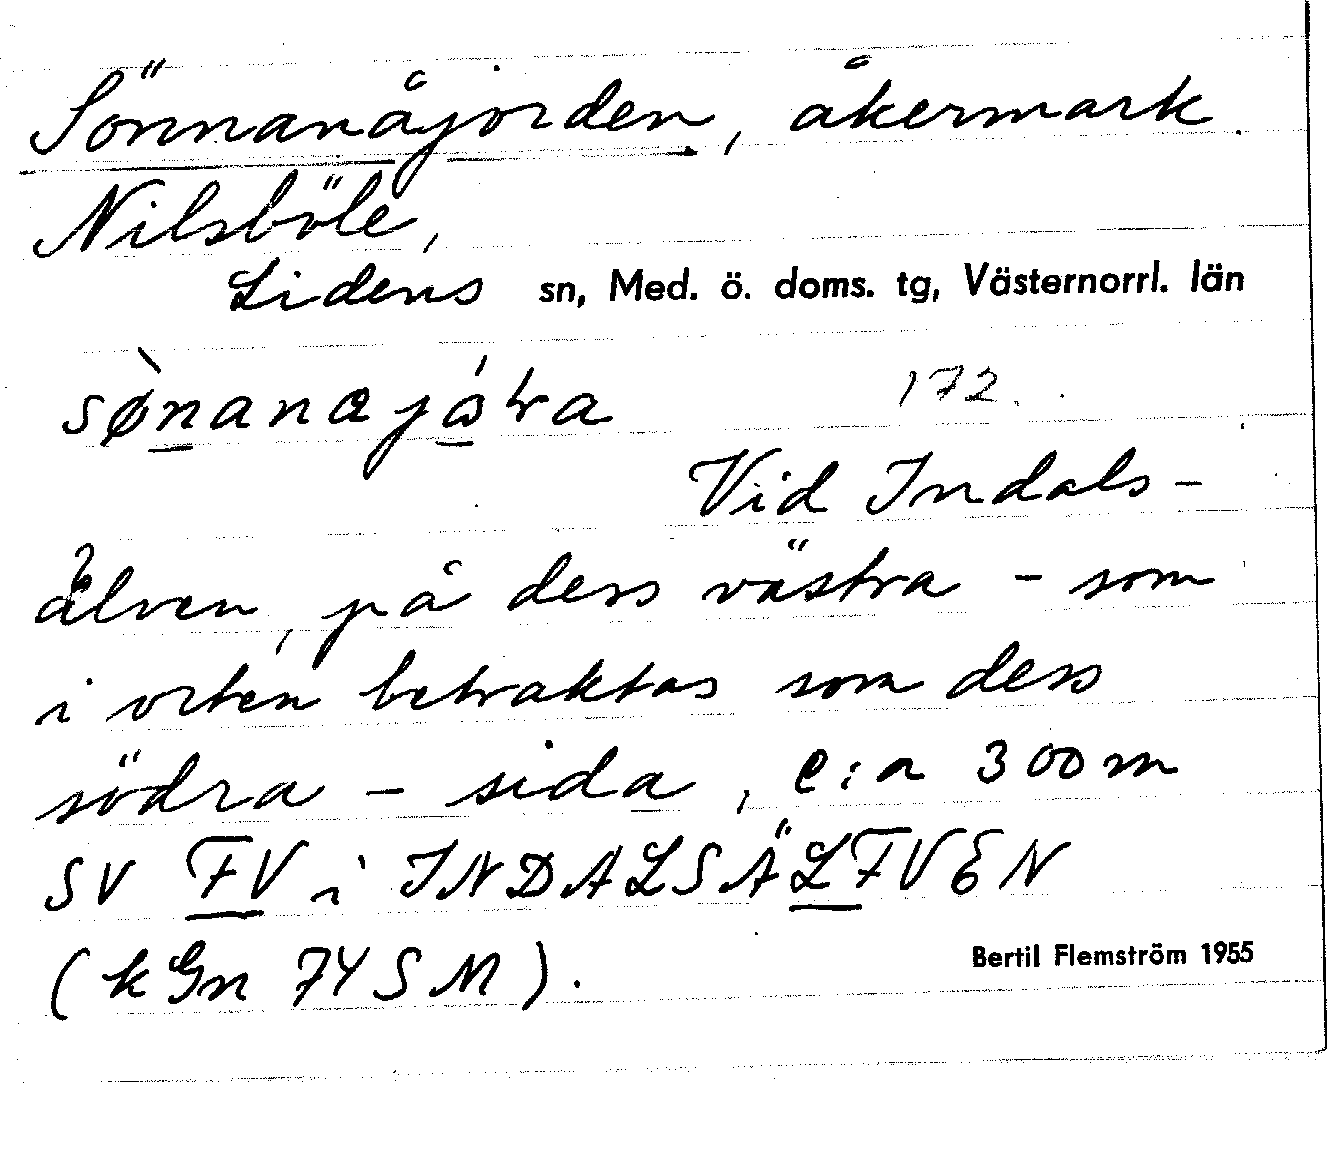 Sönnanåjorden, åkermark.
Nilsböle,
Lidens sn, Med. ö. doms. tg, Västernorrl. län
172.
Vid Indals-
älven, på dess västra - som
i orten betraktas som dess
södra - sida, c:a 300 m
SV FV i INDALSÄLFVEN
(kGn 74SM).
Bertil Flemström 1955